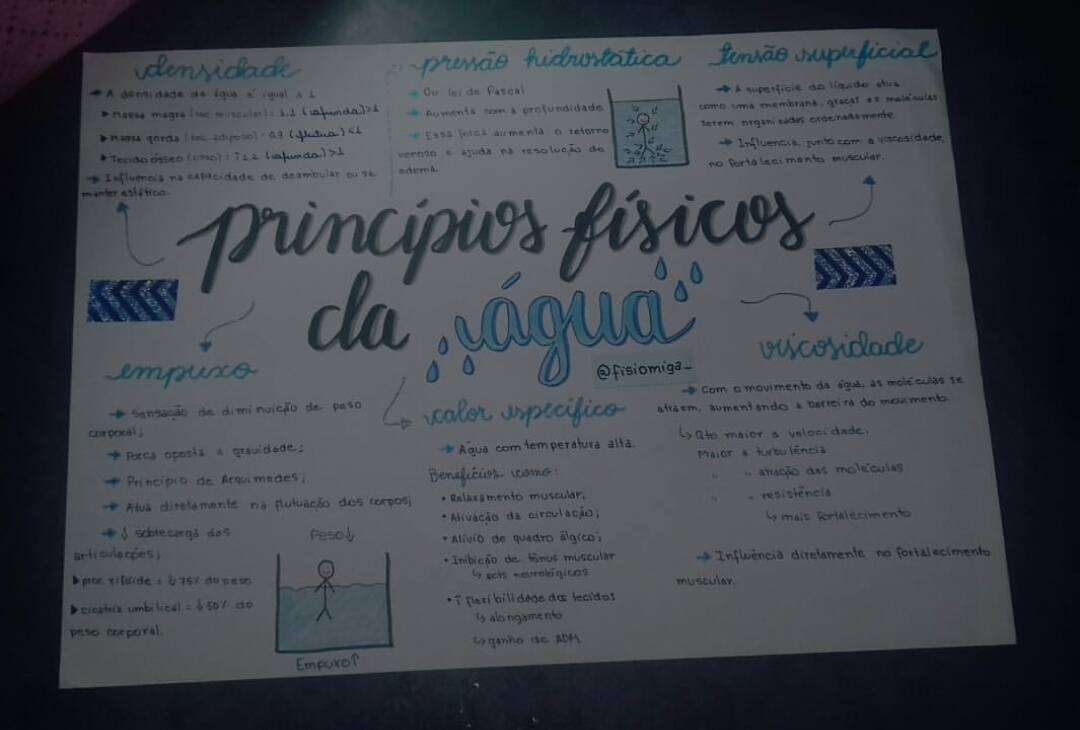 densidade
A densidade da água é igual a 1
Massa magra (tec. muscular) = 1.1 (afunda) >1
Massa gorda (tec. adiposo) = 0.9 (flutua) <1
Tecido ósseo (osso) = 1.2 (afunda) >1
Influência na capacidade de deambular ou se
manter estático.
pressão hidrostática
Ou lei de Pascal
Aumenta com a profundidade
Essa força aumenta o retorno
venoso e ajuda na resolução do
edema.
tensão superficial
A superfície do líquido atua
como uma membrana, graças as moléculas
serem organizadas ordenadamente.
Influencia, junto com a viscosidade,
no fortalecimento muscular.
princípios físicos
da água
@fisiomiga_
empuxo
Sensação de diminuição de peso
corporal;
Força oposta a gravidade;
Princípio de Arquimedes;
Atua diretamente na flutuação dos corpos;
↓ sobrecarga das
articulações;
proc. xifóide = ↓ 75% do peso
cicatriz umbilical = ↓ 50% do
peso corporal.
Peso↓
Empuxo↑
calor específico
Água com temperatura alta.
Benefícios como:
• Relaxamento muscular;
• Ativação da circulação;
• Alívio de quadro álgico;
• Inibição de tônus muscular
↳ pcts neurológicos
• ↑ flexibilidade dos tecidos
↳ alongamento
↳ ganho de ADM
viscosidade
Com o movimento da água, as moléculas se
atraem, aumentando a barreira do movimento.
↳ Qto maior a velocidade,
Maior a turbulência
" " atração das moléculas
" " resistência
↳ mais fortalecimento
Influência diretamente no fortalecimento
muscular.